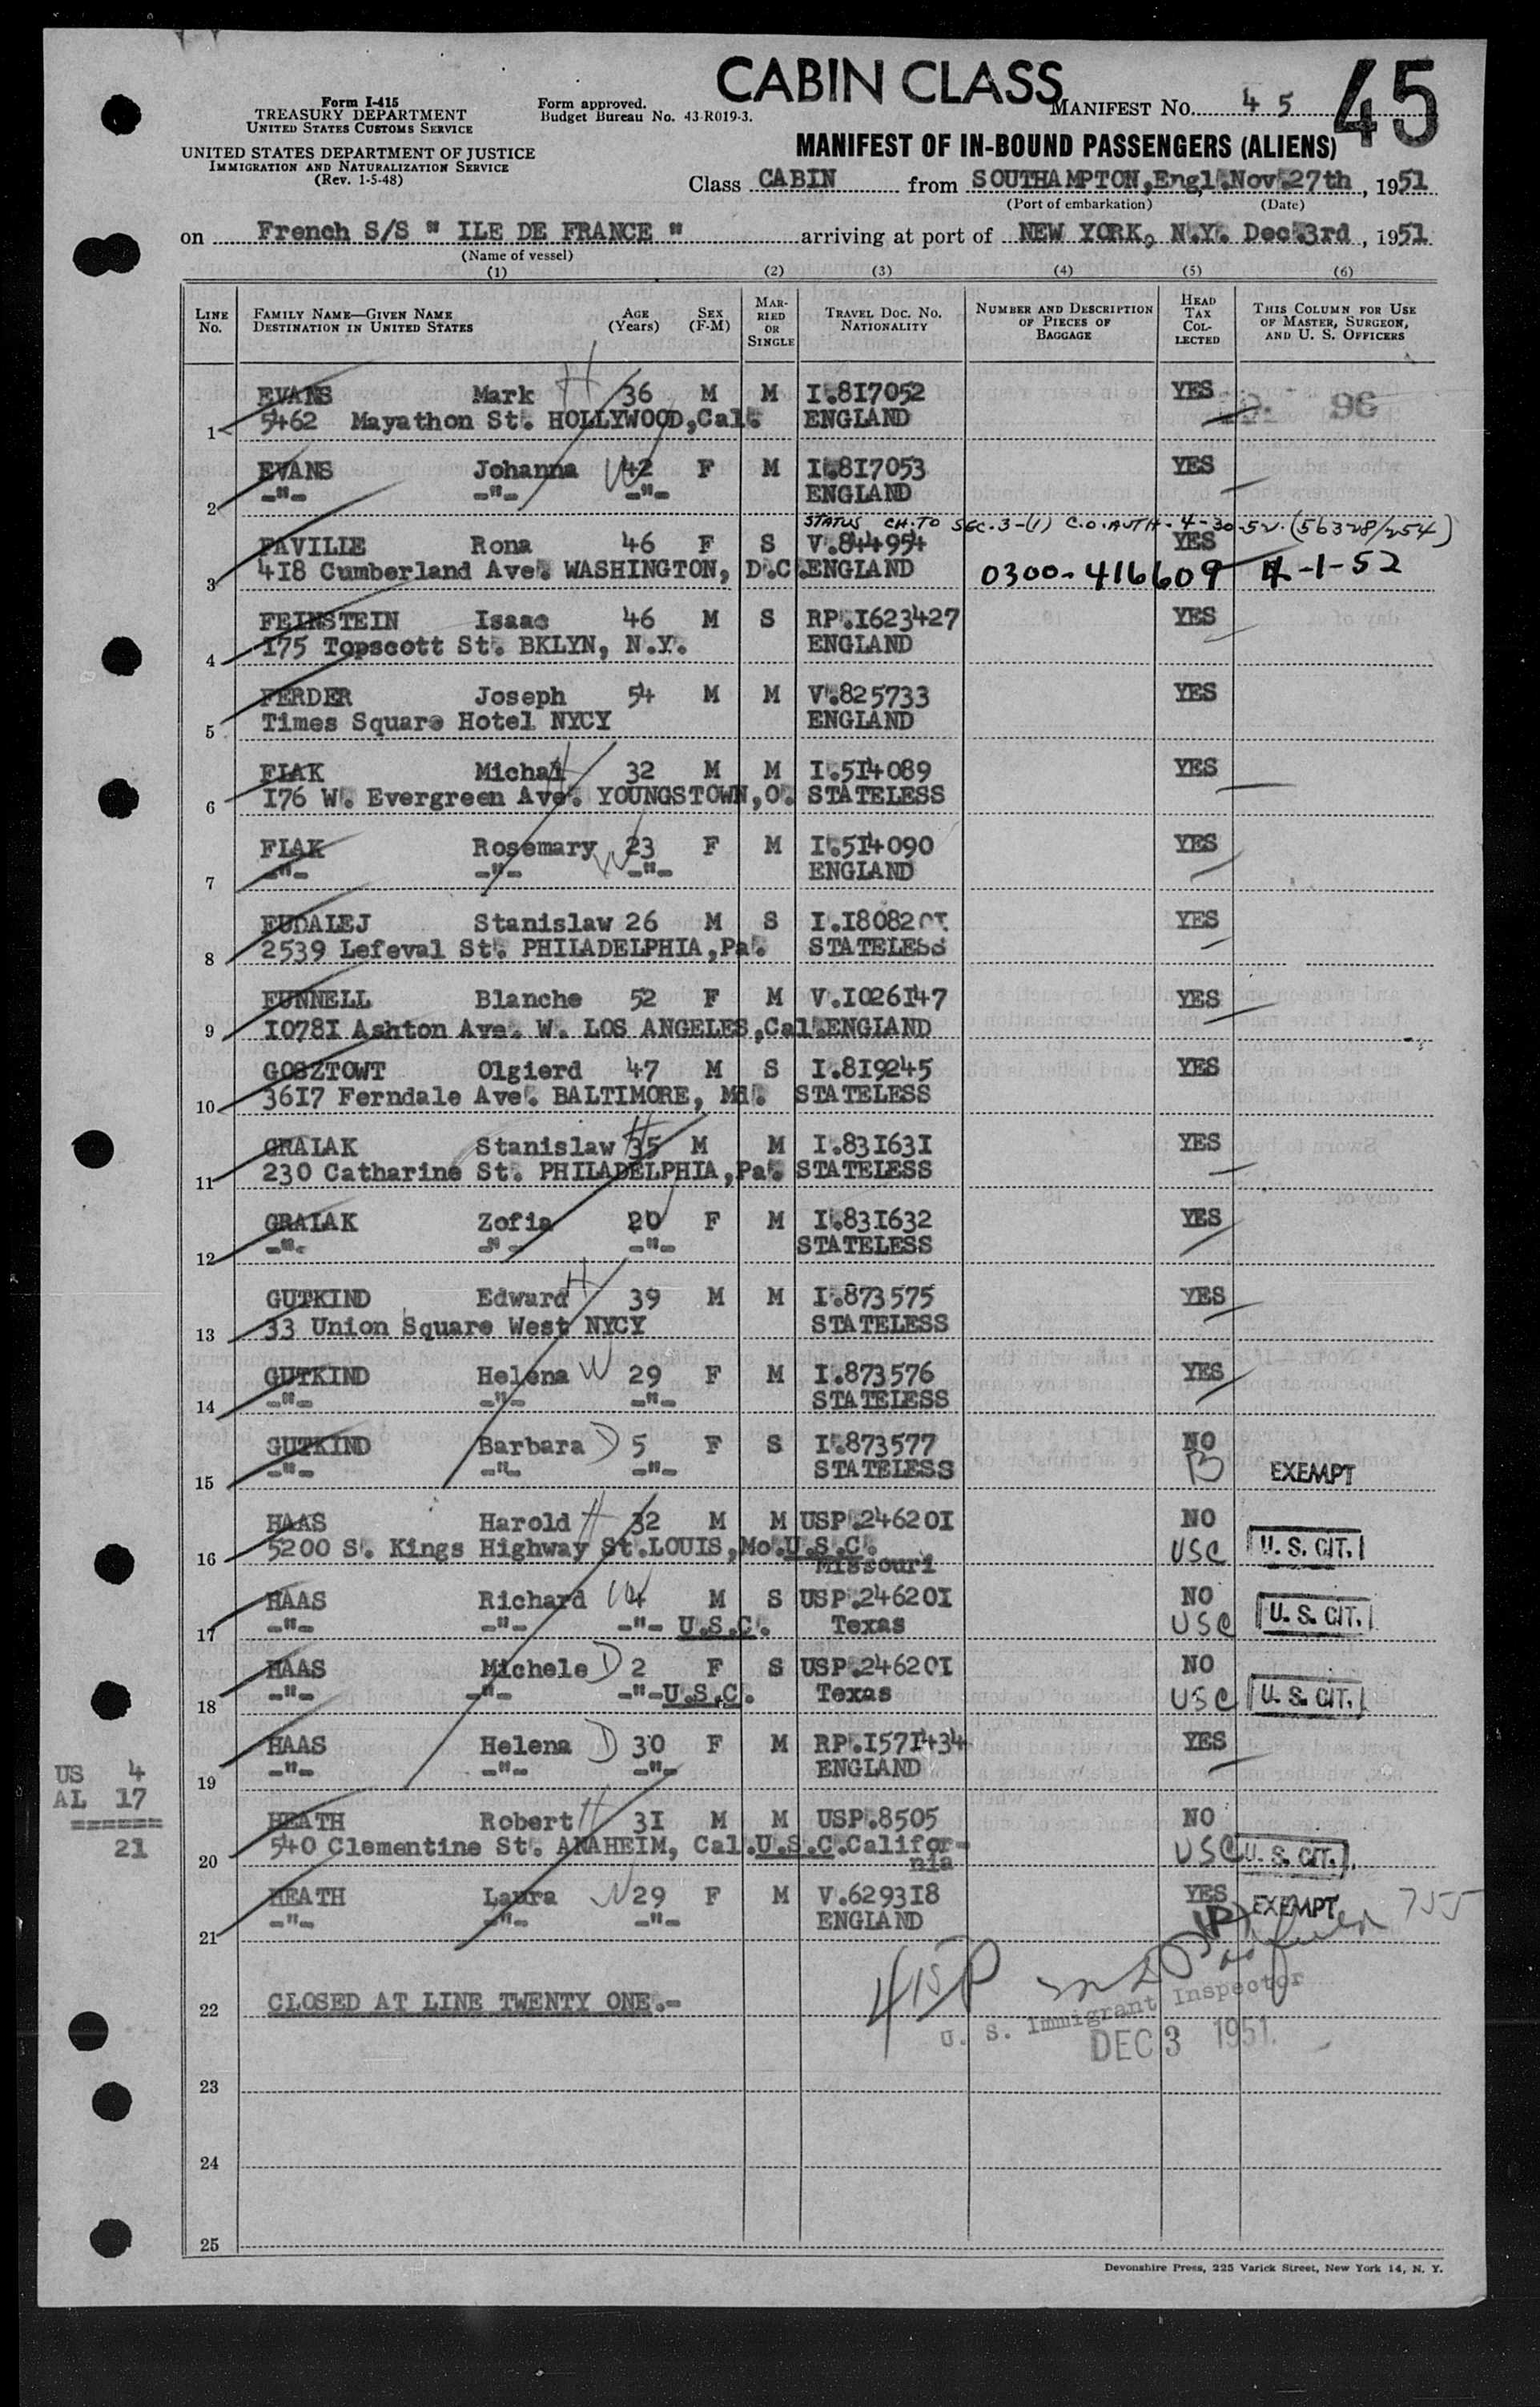 CABIN CLASS
45
Form I-415
TREASURY DEPARTMENT
UNITED STATES CUSTOMS SERVICE
Form approved.
Budget Bureau No. 43-R019-3.
MANIFEST No. 45
UNITED STATES DEPARTMENT OF JUSTICE
IMMIGRATION AND NATURALIZATION SERVICE
(Rev. 1-5-48)
MANIFEST OF IN-BOUND PASSENGERS (ALIENS)
Class CABIN from SOUTHAMPTON, Engl. Nov. 27th, 1951
(Port of embarkation) (Date)
on French S/S " ILE DE FRANCE " arriving at port of NEW YORK, N.Y. Dec. 3rd, 1951
(Name of vessel)
(1) (2) (3) (4) (5) (6)
LINE No. FAMILY NAME—GIVEN NAME DESTINATION IN UNITED STATES AGE (Years) SEX (F-M) MARRIED OR SINGLE TRAVEL DOC. NO. NATIONALITY NUMBER AND DESCRIPTION OF PIECES OF BAGGAGE HEAD TAX COLLECTED THIS COLUMN FOR USE OF MASTER, SURGEON, AND U. S. OFFICERS
EVANS Mark H 36 M M I.817052 YES 96
1 5462 Mayathon St. HOLLYWOOD, Cal. ENGLAND
EVANS Johanna W 42 F M I.817053 YES
2 -"- -"- -"- ENGLAND
STATUS CH. TO SEC. 3-(1) C.O. AUTH. 4-30-52. (56328/254)
FAVILIE Rona 46 F S V.844954 YES
3 418 Cumberland Ave. WASHINGTON, D.C. ENGLAND 0300-416609 4-1-52
FEINSTEIN Isaac 46 M S RP.I623427 YES
4 I75 Topscott St. BKLYN, N.Y. ENGLAND
FERDER Joseph 54 M M V.825733 YES
5 Times Square Hotel NYCY ENGLAND
FIAK Michal H 32 M M I.5I4089 YES
6 I76 W. Evergreen Ave. YOUNGSTOWN, O. STATELESS
FIAK Rosemary W 23 F M I.5I4090 YES
7 -"- -"- -"- ENGLAND
FUDALEJ Stanislaw 26 M S I.I80820I YES
8 2539 Lefeval St. PHILADELPHIA, Pa. STATELESS
FUNNELL Blanche 52 F M V.I026I47 YES
9 I078I Ashton Ave. W. LOS ANGELES, Cal. ENGLAND
GOSZTOWT Olgierd 47 M S I.8I9245 YES
10 36I7 Ferndale Ave. BALTIMORE, Md. STATELESS
GRAIAK Stanislaw H 35 M M I.83I63I YES
11 230 Catharine St. PHILADELPHIA, Pa. STATELESS
GRAIAK Zofia 20 F M I.83I632 YES
12 -"- -"- -"- STATELESS
GUTKIND Edward H 39 M M I.873575 YES
13 33 Union Square West NYCY STATELESS
GUTKIND Helena W 29 F M I.873576 YES
14 -"- -"- -"- STATELESS
GUTKIND Barbara D 5 F S I.873577 NO
15 -"- -"- -"- STATELESS B EXEMPT
HAAS Harold H 32 M M USP.24620I NO
16 5200 S. Kings Highway St. LOUIS, Mo. U.S.C. USC U. S. CIT.
Missouri
HAAS Richard 4 M S USP.24620I NO
17 -"- -"- -"- U.S.C. Texas USC U. S. CIT.
HAAS Michele D 2 F S USP.24620I NO
18 -"- -"- -"- U.S.C. Texas USC U. S. CIT.
HAAS Helena D 30 F M RP.I57I434 YES
19 -"- -"- -"- ENGLAND
US 4
AL 17
======
21
HEATH Robert H 3I M M USP.8505 NO
20 540 Clementine St. ANAHEIM, Cal. U.S.C. Califor-
nia USC U. S. CIT.
HEATH Laura W 29 F M V.6293I8 YES
21 -"- -"- -"- ENGLAND EXEMPT 755
22 CLOSED AT LINE TWENTY ONE.-
U. S. Immigrant Inspector
DEC 3 1951
23
24
25
Devonshire Press, 225 Varick Street, New York 14, N. Y.